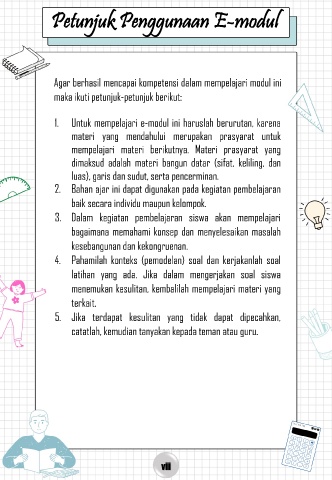 Petunjuk Penggunaan E-modul
Agar berhasil mencapai kompetensi dalam mempelajari modul ini
maka ikuti petunjuk-petunjuk berikut:
1. Untuk mempelajari e-modul ini haruslah berurutan, karena
materi yang mendahului merupakan prasyarat untuk
mempelajari materi berikutnya. Materi prasyarat yang
dimaksud adalah materi bangun datar (sifat, keliling, dan
luas), garis dan sudut, serta pencerminan.
2. Bahan ajar ini dapat digunakan pada kegiatan pembelajaran
baik secara individu maupun kelompok.
3. Dalam kegiatan pembelajaran siswa akan mempelajari
bagaimana memahami konsep dan menyelesaikan masalah
kesebangunan dan kekongruenan.
4. Pahamilah konteks (pemodelan) soal dan kerjakanlah soal
latihan yang ada. Jika dalam mengerjakan soal siswa
menemukan kesulitan, kembalilah mempelajari materi yang
terkait.
5. Jika terdapat kesulitan yang tidak dapat dipecahkan,
catatlah, kemudian tanyakan kepada teman atau guru.
vii